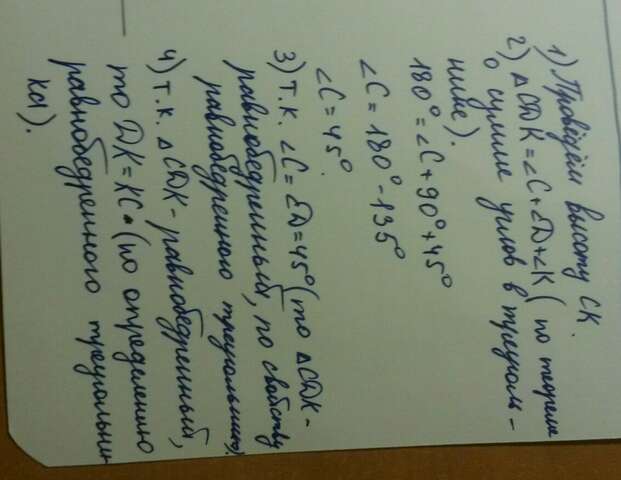 1) Проведём высоту СК.
2) ΔCDK = ∠C + ∠D + ∠K (по теореме
о сумме углов в треуголь-
нике).
180° = ∠C + 90° + 45°
∠C = 180° - 135°
∠C = 45°.
3) т.к. ∠C = ∠D = 45° (то ΔCDK -
равнобедренный, по свойству
равнобедренного треугольника).
4) т.к. ΔCDK - равнобедренный,
то DK = KC. (по определению
равнобедренного треугольни
ка).